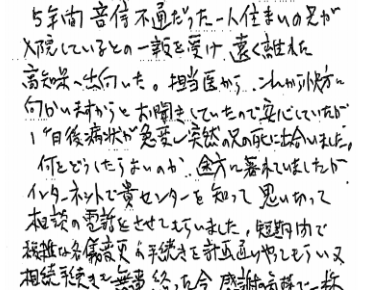 5年間音信不通だった一人住まいの兄が
入院しているとの一報を受け、遠く離れた
高知県へ出向いた。担当医から、これから快方に
向かいますからとお聞きしていたので安心していたが
1ヶ月後病状が急変し突然の兄の死に出会いました。
何をどうしたらよいのか、途方に暮れていましたが
インターネットで貴センターを知って思い切って
相談の電話をさせてもらいました。短期間で
複雑な名儀変更の手続きを計画通りやってもらい又
相続手続きを無事終った今、感謝の気持で一杯